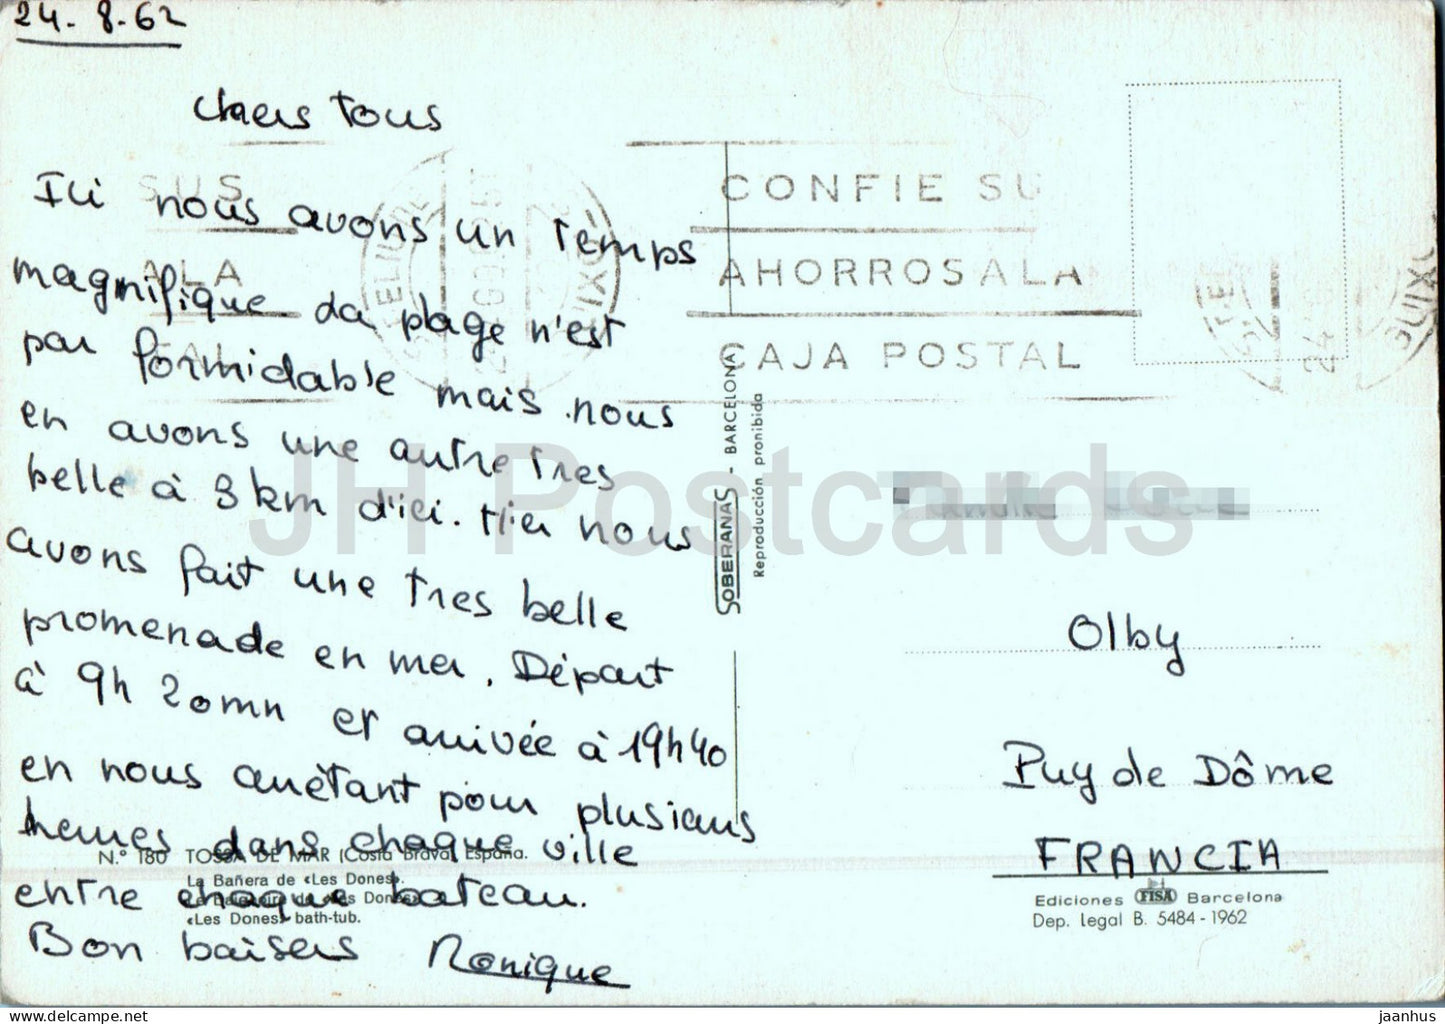 24-8-62
Chers Tous
Ici nous avons un Temps
magnifique. La plage n'est
pas formidable mais nous
en avons une autre Très
belle à 3 km d'ici. Hier nous
avons fait une Très belle
promenade en mer. Départ
à 9h 20mn et arrivée à 19h40
en nous arrêtant pour plusieurs
heures dans chaque ville
entre chaque bateau.
Bon baisers Monique
SUS
ALA
CONFIE SU
AHORROS A LA
CAJA POSTAL
24
SOBERANAS - BARCELONA
Reproducción prohibida
Olby
Puy de Dôme
FRANCIA
Ediciones FISA Barcelona
Dep. Legal B. 5484-1962
N.° 180 TOSSA DE MAR (Costa Brava) España.
La Bañera de «Les Dones».
«Les Dones» bath-tub.
JH Postcards
www.delcampe.net
jaanhus